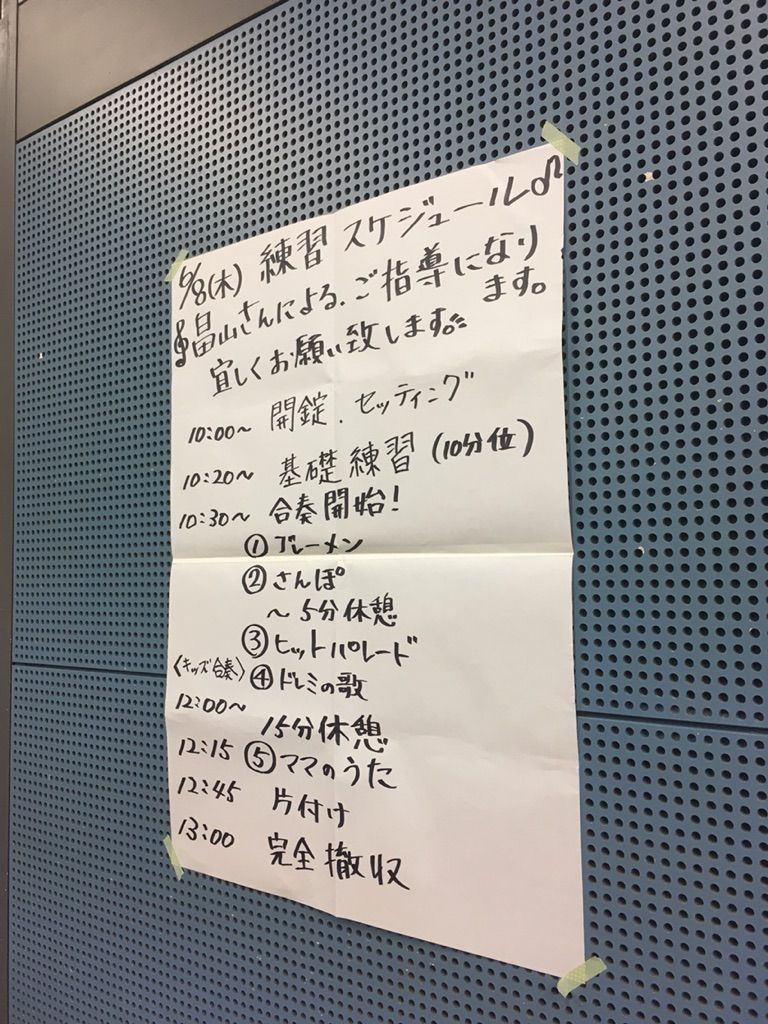 6/8(木) 練習 スケジュール♫
畠山さんによる、ご指導になります。
宜しくお願い致します。
10:00〜 開錠、セッティング
10:20〜 基礎練習 (10分位)
10:30〜 合奏開始!
① ブレーメン
② さんぽ
〜 5分休憩
③ ヒットパレード
〈キッズ合奏〉 ④ ドレミの歌
12:00〜 15分休憩
12:15 ⑤ ママのうた
12:45 片付け
13:00 完全撤収